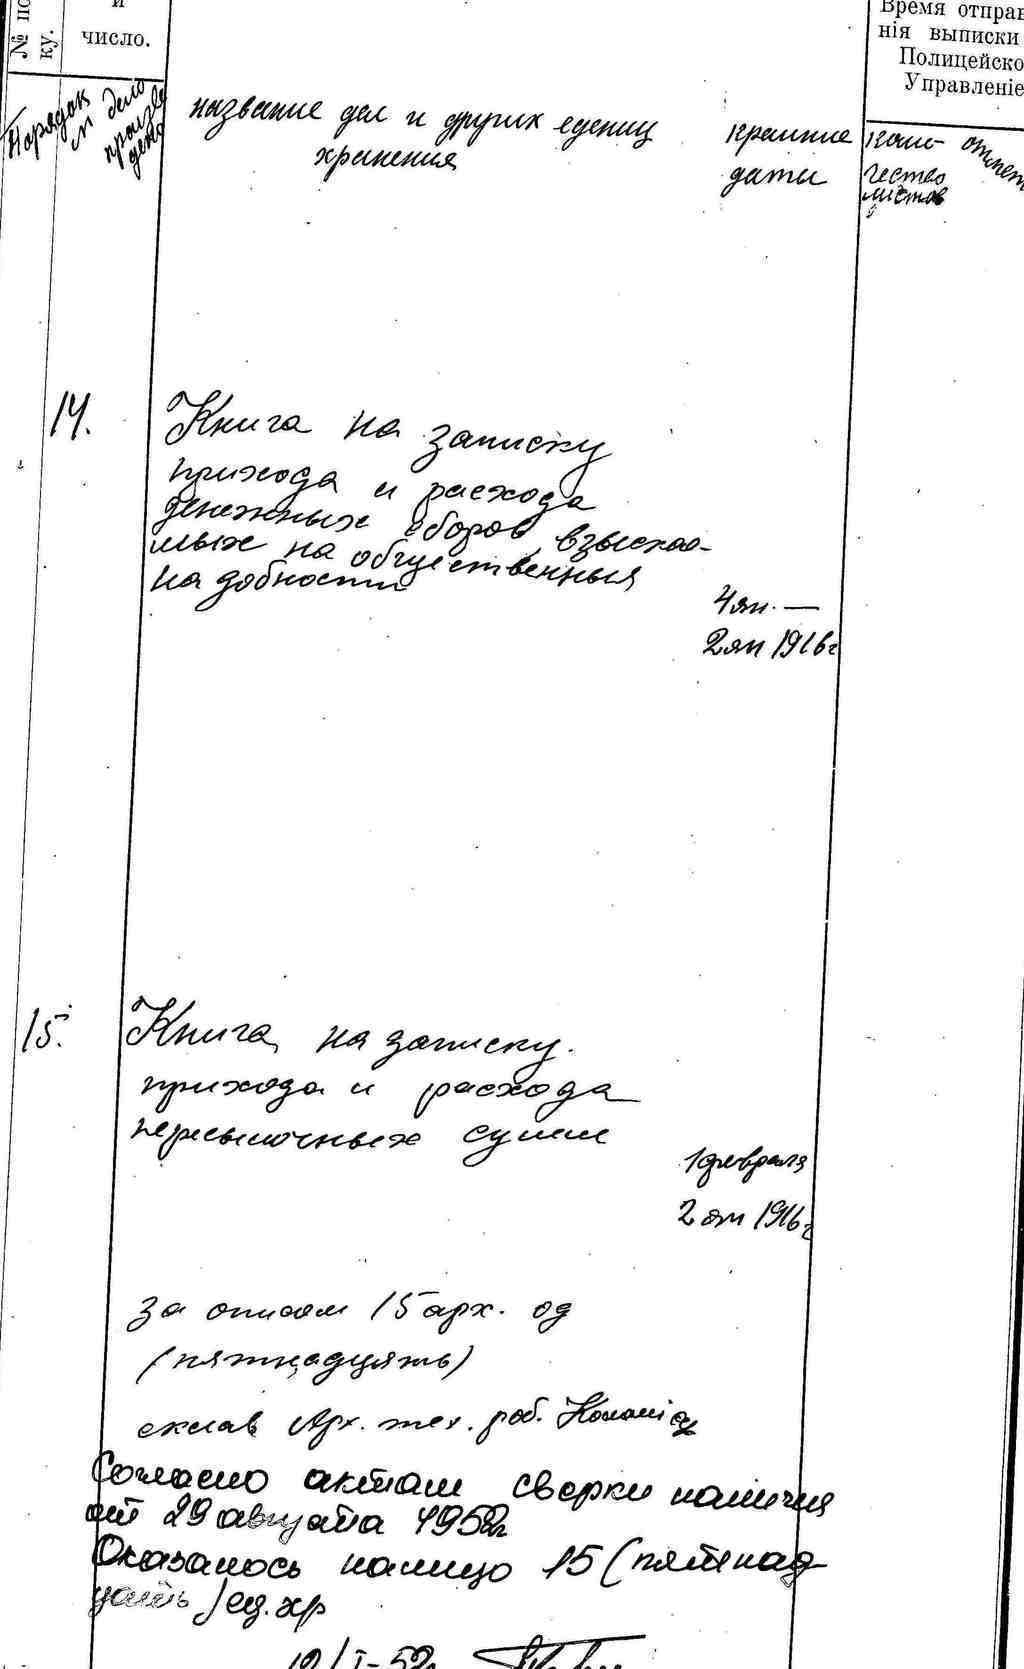 № по
ку.
и
число.
Время отправ
нія выписки
Полицейско
Управленіе
Порядок
дело
произве
дено
название дел и других едениц
хранения
крайние
даты
коли-
чество
листов
отмет
14.
Книга на записку
прихода и расхода
денежных сборов взыскае-
мых на общественныя
надобности
4 ян. —
2 ян 1916г
15.
Книга на записку.
прихода и расхода
пересылочных сумм
1 февраля
2 ян 1916г
За описом 15 арх. од
(пятнадцять)
склав Арх. тех. роб.
Согласно актам сверки наличия
от 29 августа 1952г
Оказалось налицо 15 (пятнад
цать) ед. хр